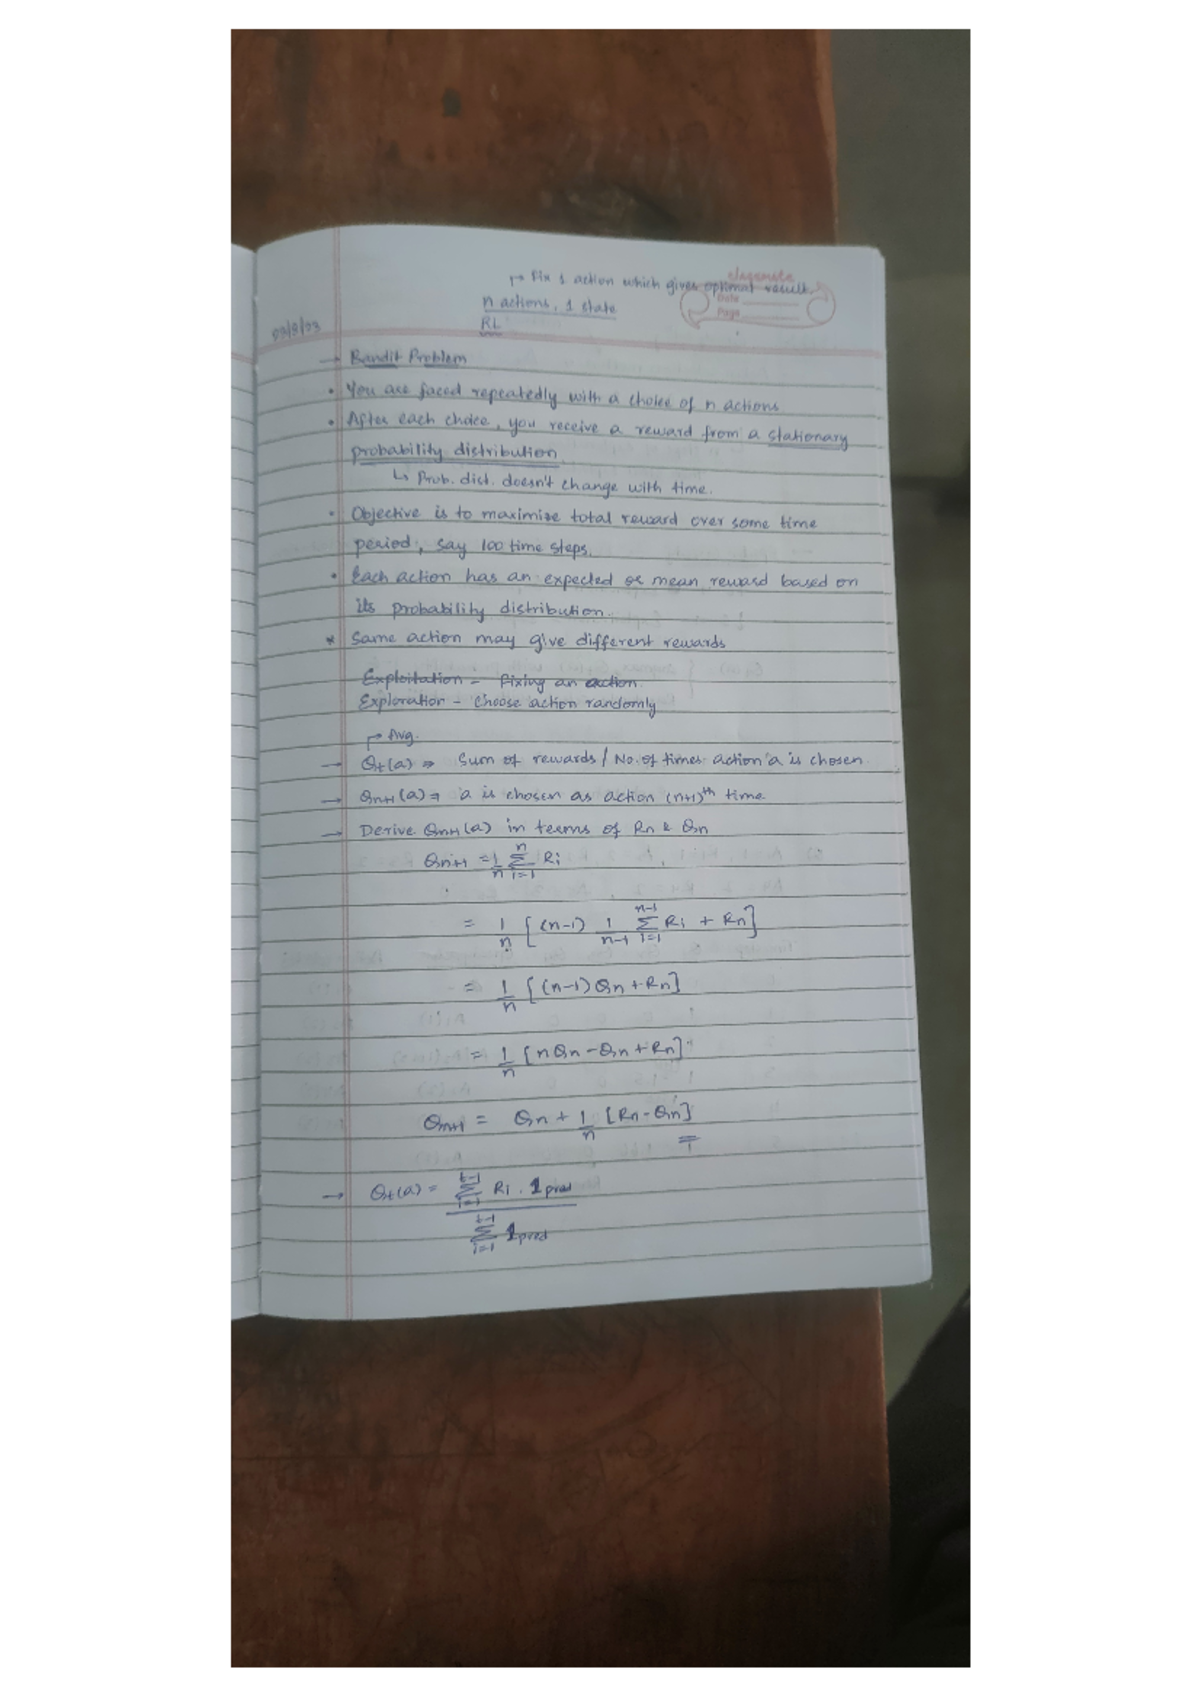 ↱ Fix 1 action which gives optimal result.
classmate
Date
Page
n actions, 1 state
RL
→ Bandit Problem
• You are faced repeatedly with a choice of n actions
• After each choice, you receive a reward from a stationary
probability distribution
↳ Prob. dist. doesn't change with time.
• Objective is to maximize total reward over some time
period, say 100 time steps.
• Each action has an expected or mean reward based on
its probability distribution.
* Same action may give different rewards
Exploitation - Fixing an action
Exploration - Choose action randomly
↱ Avg.
→ Qt(a) ⇒ Sum of rewards / No. of times action 'a' is chosen.
→ Qn+1(a) ⇒ a is chosen as action (n+1)th time
→ Derive Qn+1(a) in terms of Rn & Qn
Qn+1 = 1/n Σ_{i=1}^{n} Ri
= 1/n [(n-1) 1/(n-1) Σ_{i=1}^{n-1} Ri + Rn]
= 1/n [(n-1)Qn + Rn]
= 1/n [nQn - Qn + Rn]
Qn+1 = Qn + 1/n [Rn - Qn]
→ Qt(a) = Σ_{i=1}^{t-1} Ri . 1pred
Σ_{i=1}^{t-1} 1pred